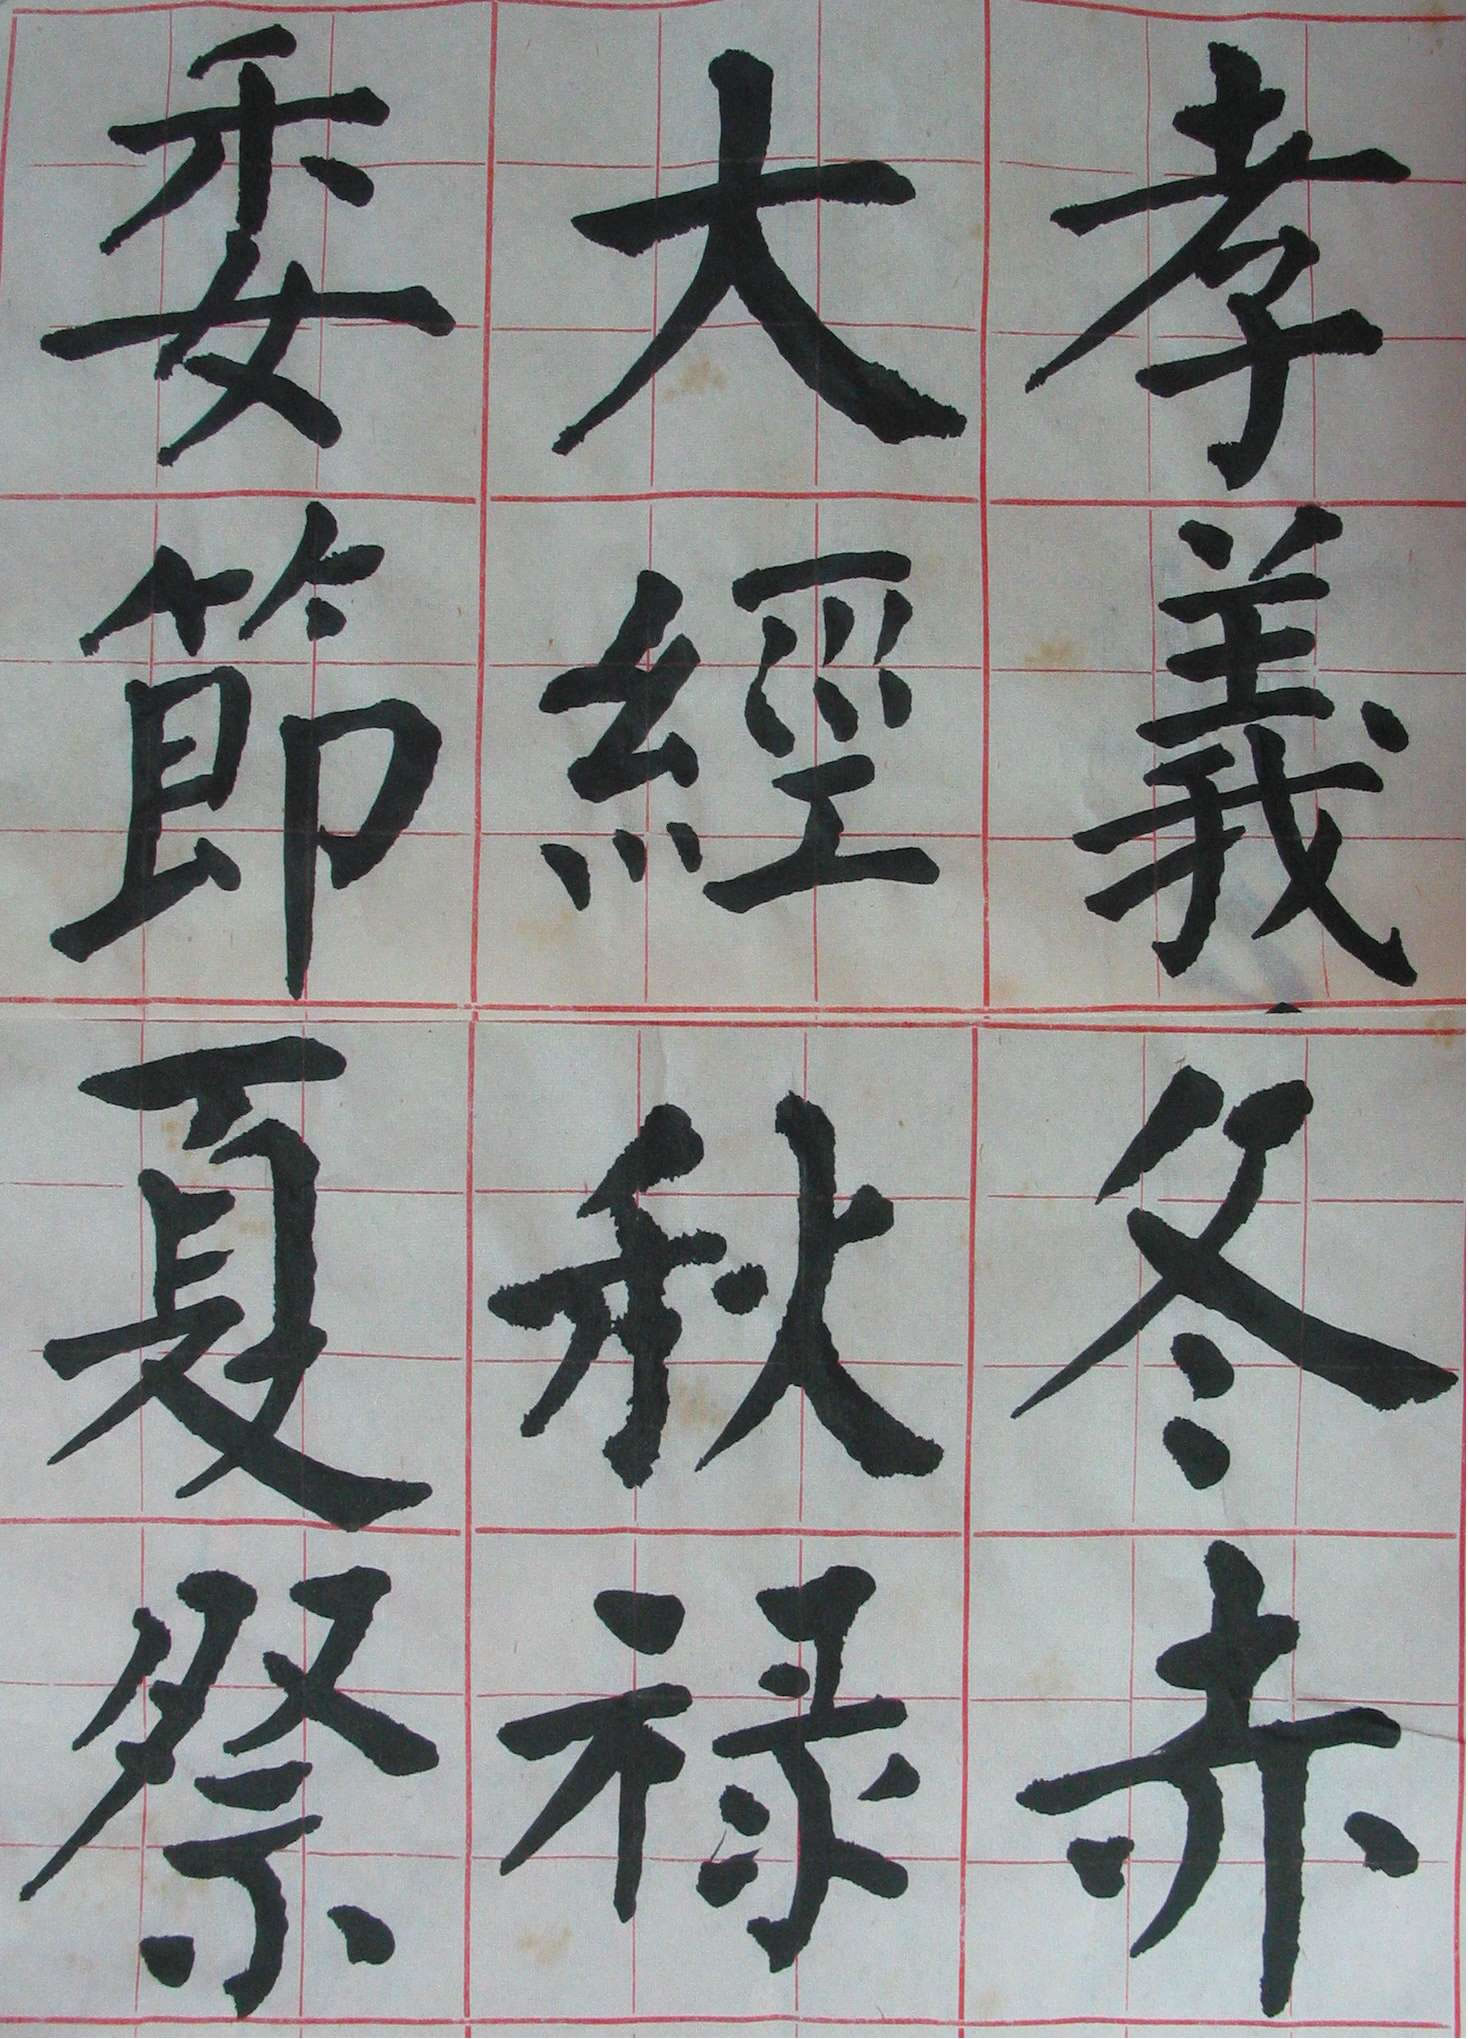 孝義冬赤
大經秋禄
委節夏祭